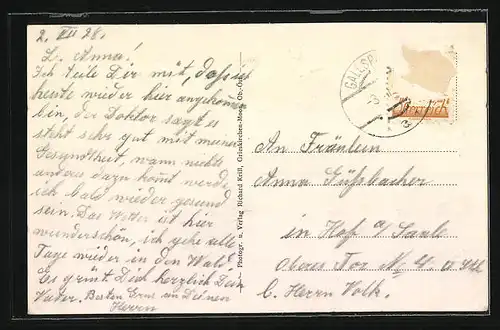 2. VII 28.
L. Anna!
Ich teile Dir mit, daß ich
heute wieder hier angekommen
bin, der Doktor sagt es
steht sehr gut mit meiner
Gesundheit, wann nichts
anderes dazu kommt werde
ich bald wieder gesund
sein. Das Wetter ist hier
wunderschön, ich gehe alle
Tage wieder in den Wald.
Es grüßt Dich herzlich Dein
Vater. Besten Gruß an Deinen
Herrn
Photogr. u. Verlag Richard Keill, Grieskirchen-Moos, Ob.-Öst.
GALLSP
Österreich
An Fräulein
Anna Süßbacher
in Hof a/ Saale
Oberes Tor No 4
b. Herrn Volk.